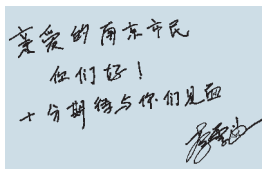 亲爱的南京市民
你们好！
十分期待与你们见面